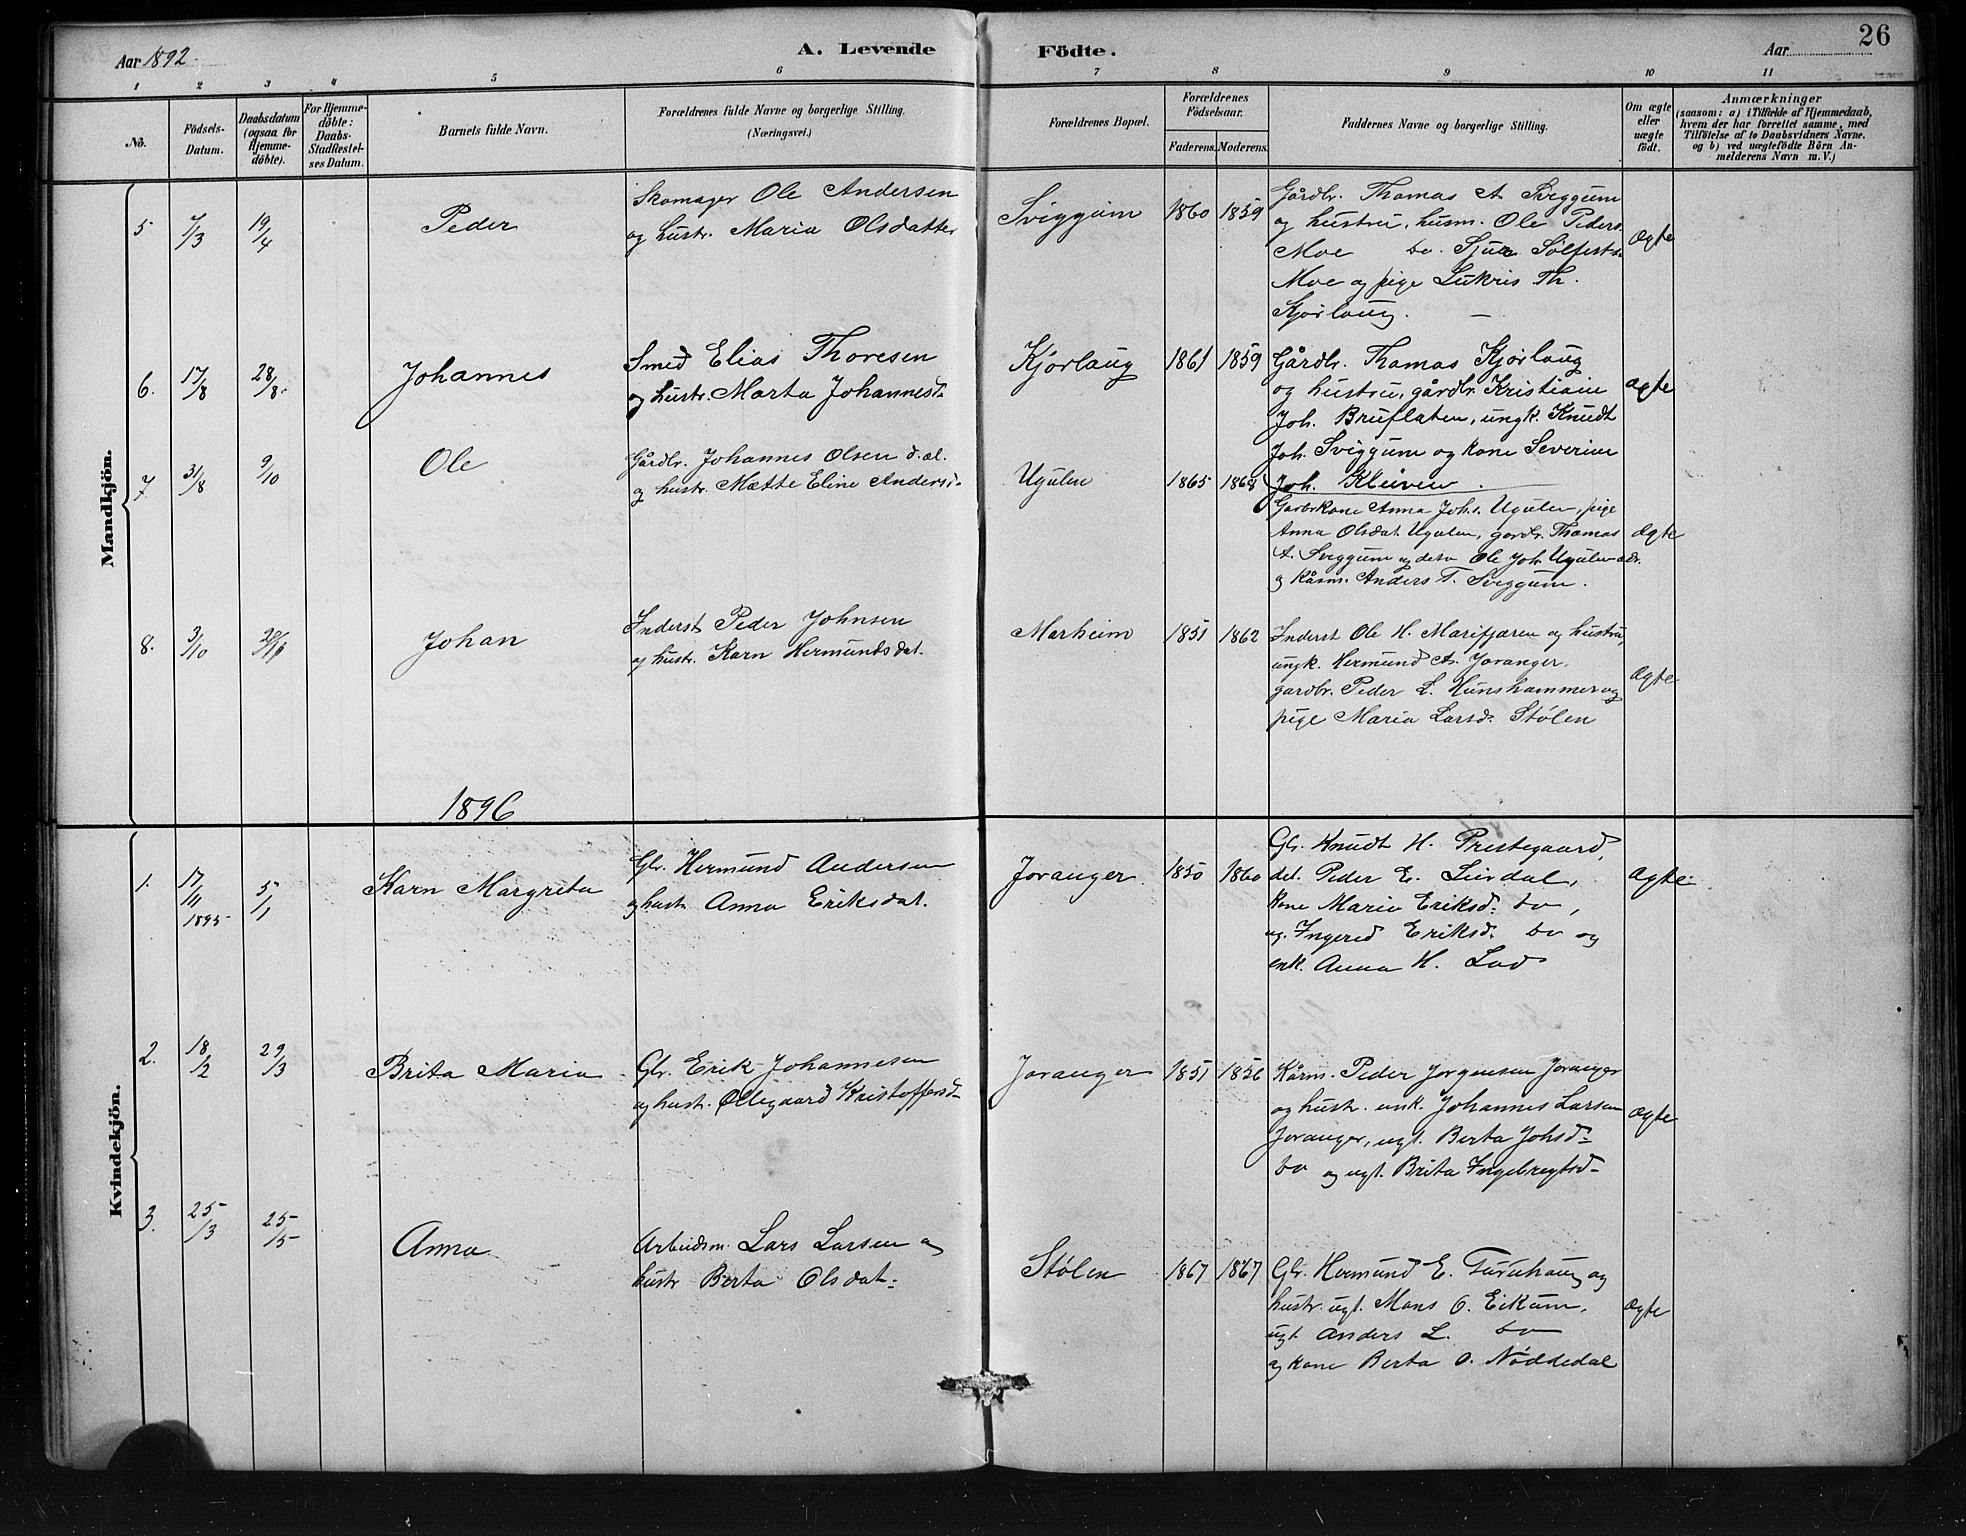 26
Aar 1892.
A. Levende Födte.
Aar
1 2 3 4 5 6 7 8 9 10 11
No.
Födsels-Datum.
Daabsdatum (ogsaa for Hjemme-döbte).
For Hjemme-döbte: Daabs-Stadfæstel-ses Datum.
Barnets fulde Navn.
Forældrenes fulde Navne og borgerlige Stilling.
(Næringsvei.)
Forældrenes Bopæl.
Forældrenes Födselsaar.
Faderens. Moderens.
Faddernes Navne og borgerlige Stilling.
Om ægte eller uægte födt.
Anmærkninger
(saasom: a) i Tilfælde af Hjemmedaab,
hvem der har forrettet samme, med
Tilföielse af to Daabsvidners Navne,
og b) ved uægtefödte Börn An-
melderens Navn m. V.)
Mandkjön.
5 7/3 19/4 Peder
Skomager Ole Andersen
og hustr. Maria Olsdatter
Sviggum 1860 1859
Gårdbr. Thomas A Sviggum
og hustru, husm. Ole Peders.
Moe do. Sjur Sølfests.
Moe og pige Lukris Th.
Kjørlaug. —
Ægte
6. 17/8 28/8. Johannes
Smed Elias Thoresen
og hustr. Marta Johannesd.
Kjørlaug 1861 1859
Gårdbr. Thomas Kjørlaug
og hustru, gårdbr. Kristian
Joh. Bruflaten, ungk. Knudt
Joh. Sviggum og kone Severine
Joh. Kleiven.
ægte
7 31/8 9/10 Ole
Gårdbr. Johannes Olsen d. æl.
og hustr. Mætte Eline Andersd.
Ugulen 1865 1868
Gardbrkone Anna Joh.s. Ugulen, pige
Anna Olsdat Ugulen, gardbr. Thomas
A. Sviggum og do Ole Joh. Ugulen
og kårm. Anders T. Sviggum.
Ægte
8. 3/10 Johan
Inderst Peder Johnsen
og hustr. Karn Hermundsdat.
Marheim 1851 1862
Inderst Ole H. Marifjæren og hustru,
ungk. Hermund A. Joranger,
gardbr. Peder L. Hunshammer og
pige Maria Larsd. Stølen
Ægte
1896
Kvindekjön.
1. 17/11 1895 5/1 Karn Margreta
Gbr. Hermund Andersen
og hustr. Anna Eriksdat.
Joranger 1850 1860
Gbr. Knudt H. Prestegaard,
det. Peder E. Leirdal,
kone Maria Eriksd. do,
ug. Ingered Eriksd. do og
enk. Anna H. Lad
Ægte
2. 18/2 29/3 Brita Maria
Gbr. Erik Johannesen
og hustr. Ollegaard Kristoffersd.
Joranger 1851 1856
Kårm. Peder Jørgensen Joranger
og hustr. enk. Johannes Larsen
Joranger, ugt. Berta Johsd.
do og ugt. Brita Ingebregtsd.
Ægte
3. 25/3 25/5 Anna
Arbeidsm. Lars Larsen og
hustr Berta Olsdat.
Stølen 1867 1867
Gbr. Hermund E. Furuhaug og
hustr. ugt. Mons O. Eikum,
ugt Anders L. do
og kone Berta O. Nøddedal
Ægte